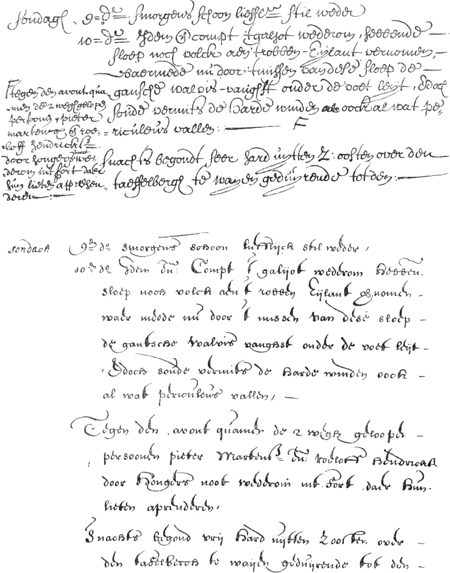 Sondagh. 9=de Smorgens schoon lieffl. stil weder
10=de Idem compt 't galjot wederom, hebbende
sloep noch volck aen't robben-Eijlant vernomen,
waermede nu door 't missen van dese sloep de
gansche walvis-vanghst onder de voet leijt, Edoch
soude vermits de harde winden oock al wat pe=
=riculeus vallen: F
F tegen den avont qua
men de 2 weghgelopen
persoonen, pieter
marten en roe=
loff hendricks
door hongersnoot
wederom int fort daer
hun lieten apprehen
deren:
Snachts begondt seer hard uijtten Z: oosten over den
taeffelbergh te waijen gedúijrende tot den:
sondach 9en do smorgens schoon lieflijck stil weder,
10en do Idem Compt 't galijot wederom hebben
sloep noch volck aen't robben Eijlant vernomen
waer meede nu door 't missen van dese sloep
de gantsche walvis vanghst onder de voet leijt
Edoch soude vermits de harde winden oock
al wat periculeus vallen,
Tegen den avont quamen de 2 wegh geloopen
persoonen pieter Martens roeloff Hendrick
door Hongers noot wederom int fort daer hun
lieten aprenderen,
Snachts begond vrij Hard uijtten Z oosten over
den taeffelberch te waijen geduijrende tot den